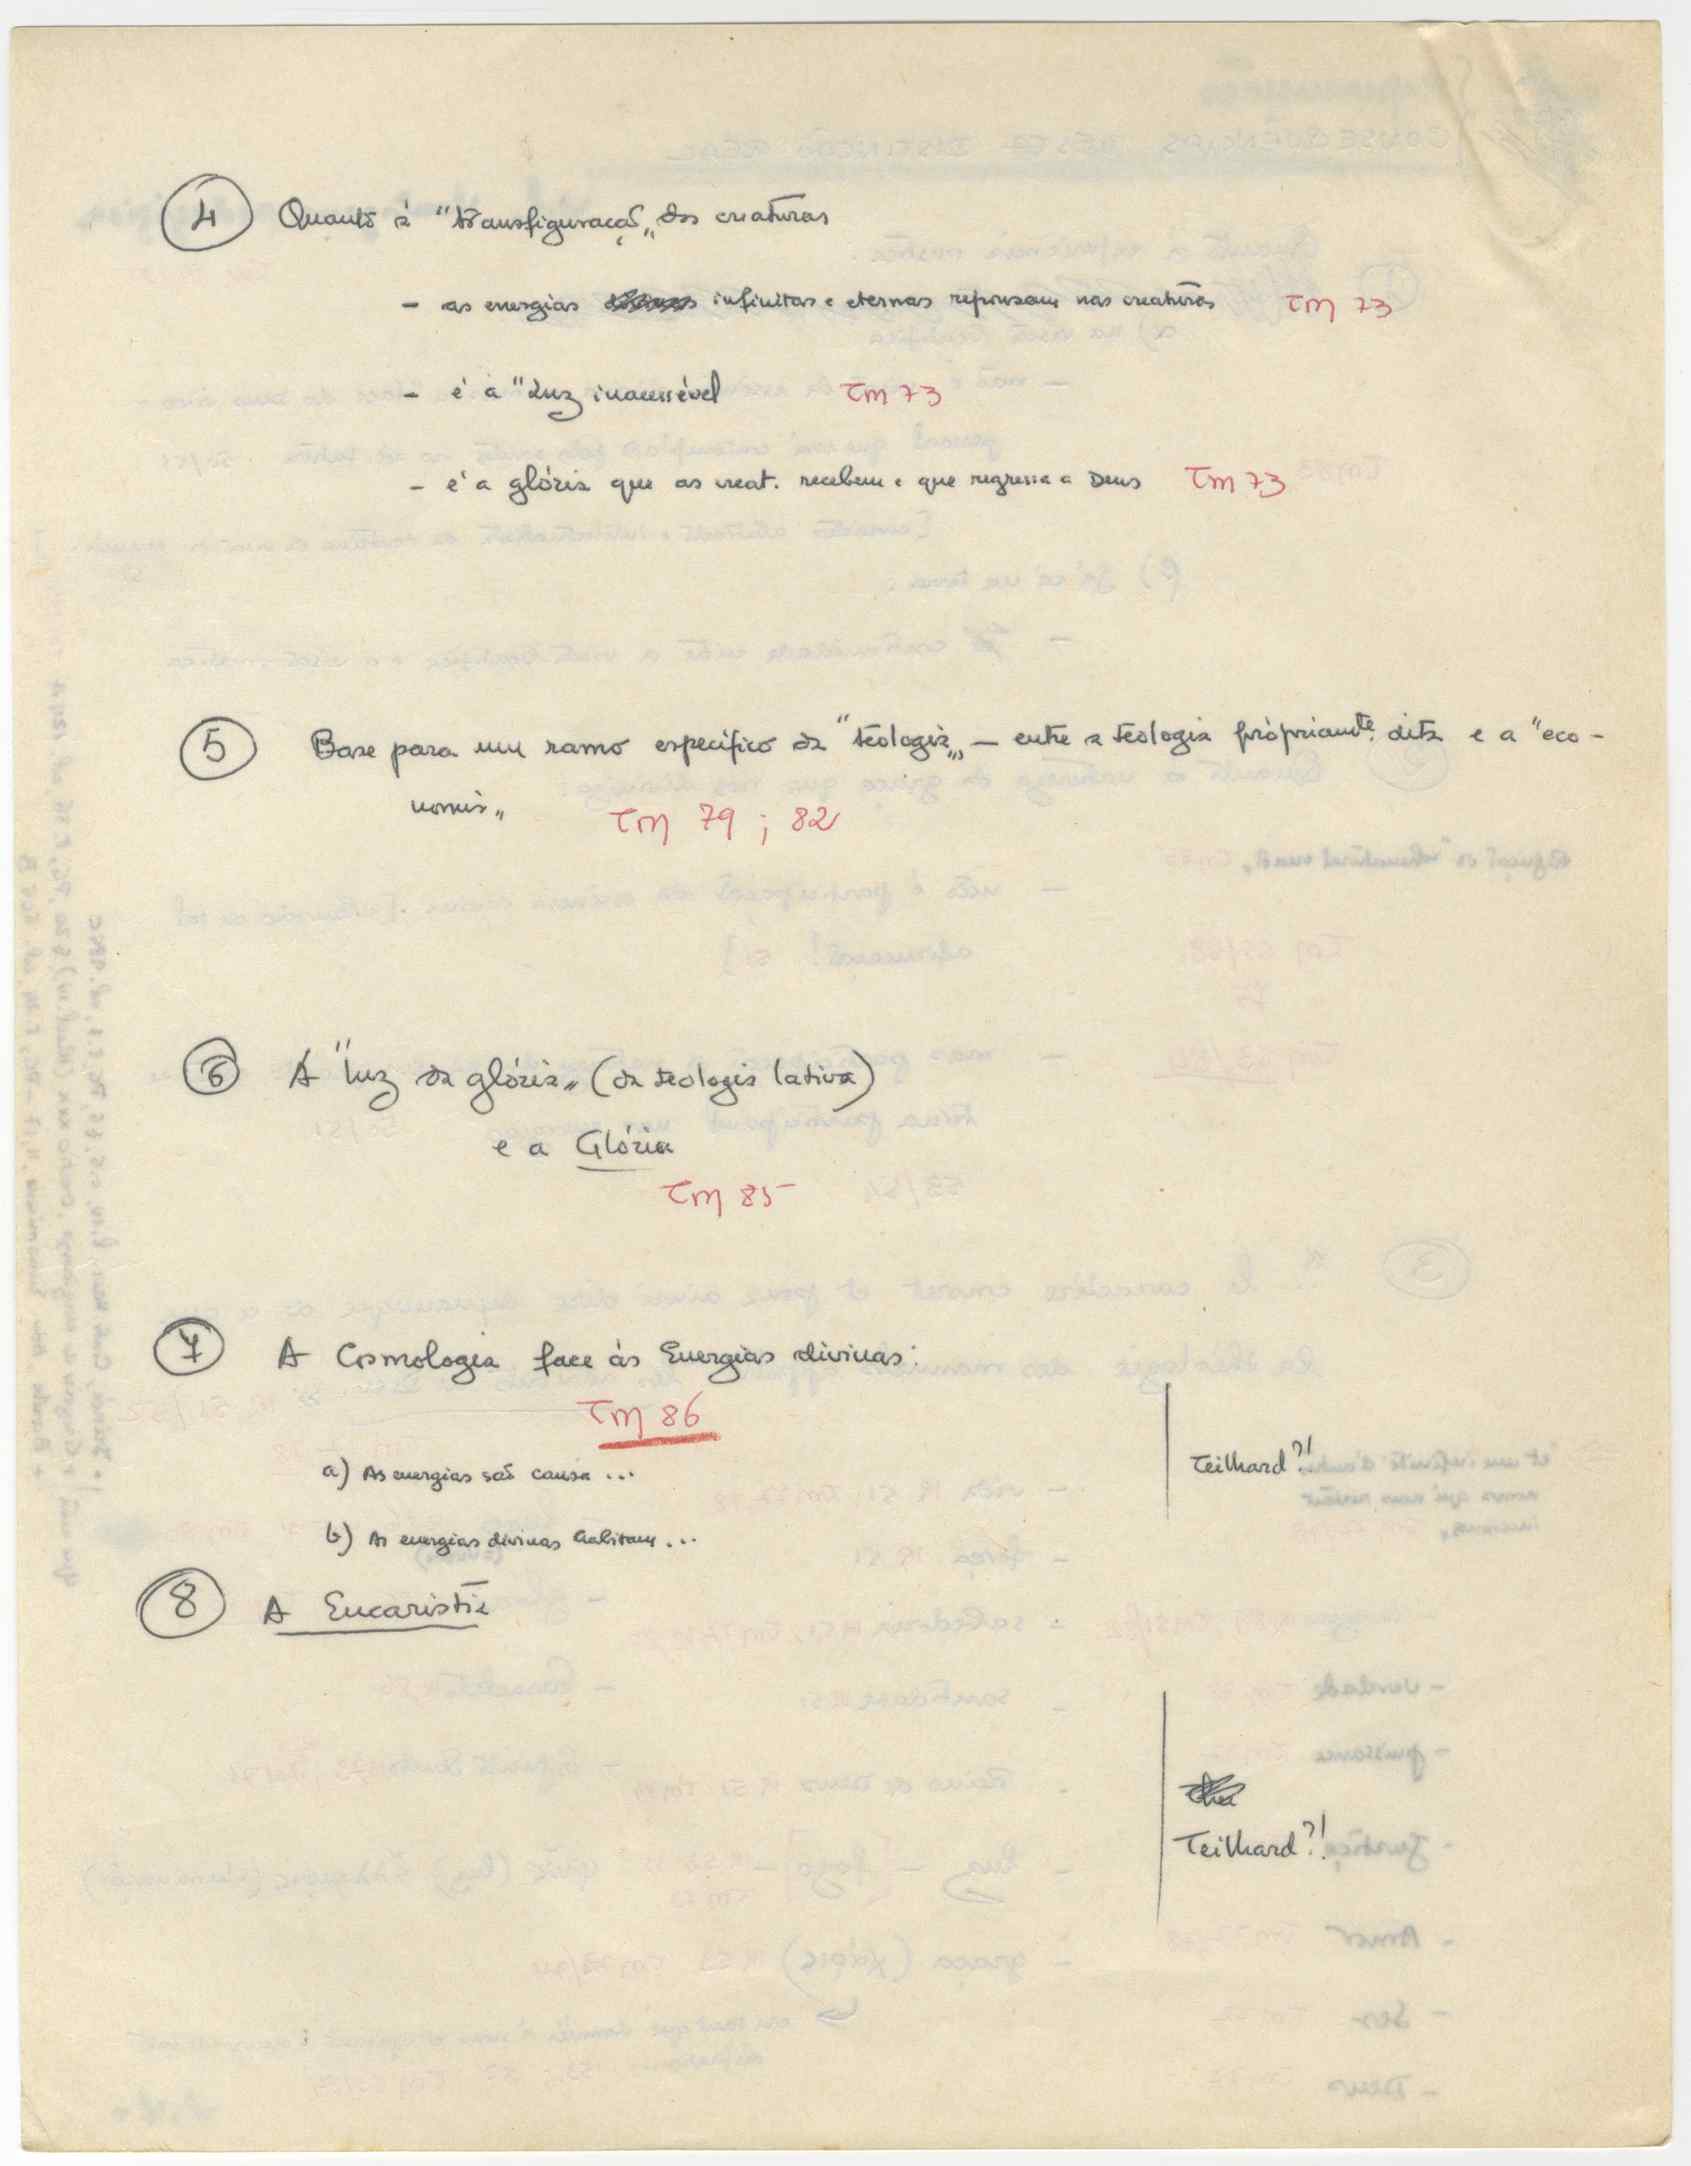 4 Quanto à "transfiguração" das criaturas
- as energias infinitas e eternas repousam nas creaturas TM 73
- é a "Luz inacessível TM 73
- é a glória que as creat. recebem e que regressa a Deus TM 73
5 Base para um ramo específico da "teologia" — entre a teologia pròpriamte. dita e a "eco-
nomia" TM 79 ; 82
6 A "luz da glória" (da teologia latina)
e a Glória
TM 85
7 A Cosmologia face às Energias divinas:
TM 86
a) As energias são causa ...
Teilhard?!
b) As energias divinas habitam ...
8 A Eucaristia
Teilhard?!